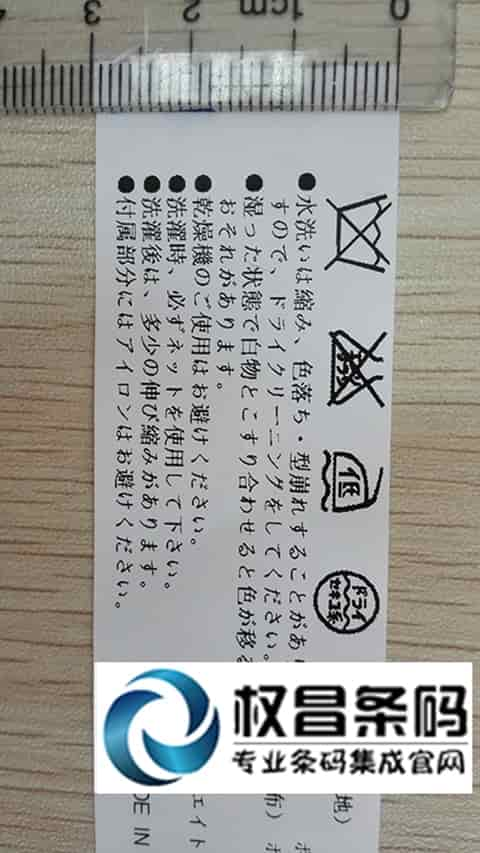 0
1cm
2
3
4
エンソ
サラシ
低
ドライ
セキユ系
●水洗いは縮み、色落ち・型崩れすることがあり
すので、ドライクリーニングをしてください。
●湿った状態で白物とこすり合わせると色が移る
おそれがあります。
●乾燥機のご使用はお避けください。
●洗濯時、必ずネットを使用して下さい。
●洗濯後は、多少の伸び縮みがあります。
●付属部分にはアイロンはお避けください。
地)
布)
エイト
DE IN
权昌条码
专业条码集成官网